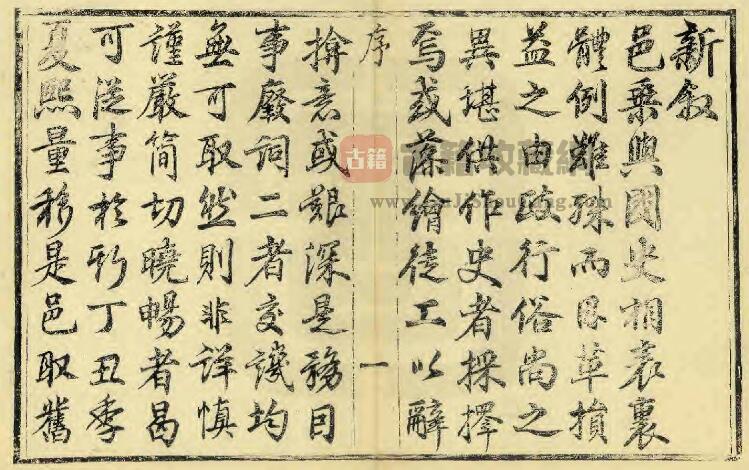 新叙
邑乘與國史相表裏
體例雖殊而因革損
益之由政行俗尚之
異堪供作史者採擇
焉或藻繪徒工以辭
序
一
揜意或艱深是務因
事廢詞二者交譏均
無可取然則非詳慎
謹嚴簡切曉暢者曷
可從事於斯丁丑季
夏熙量移是邑取舊
古籍
古籍收藏網